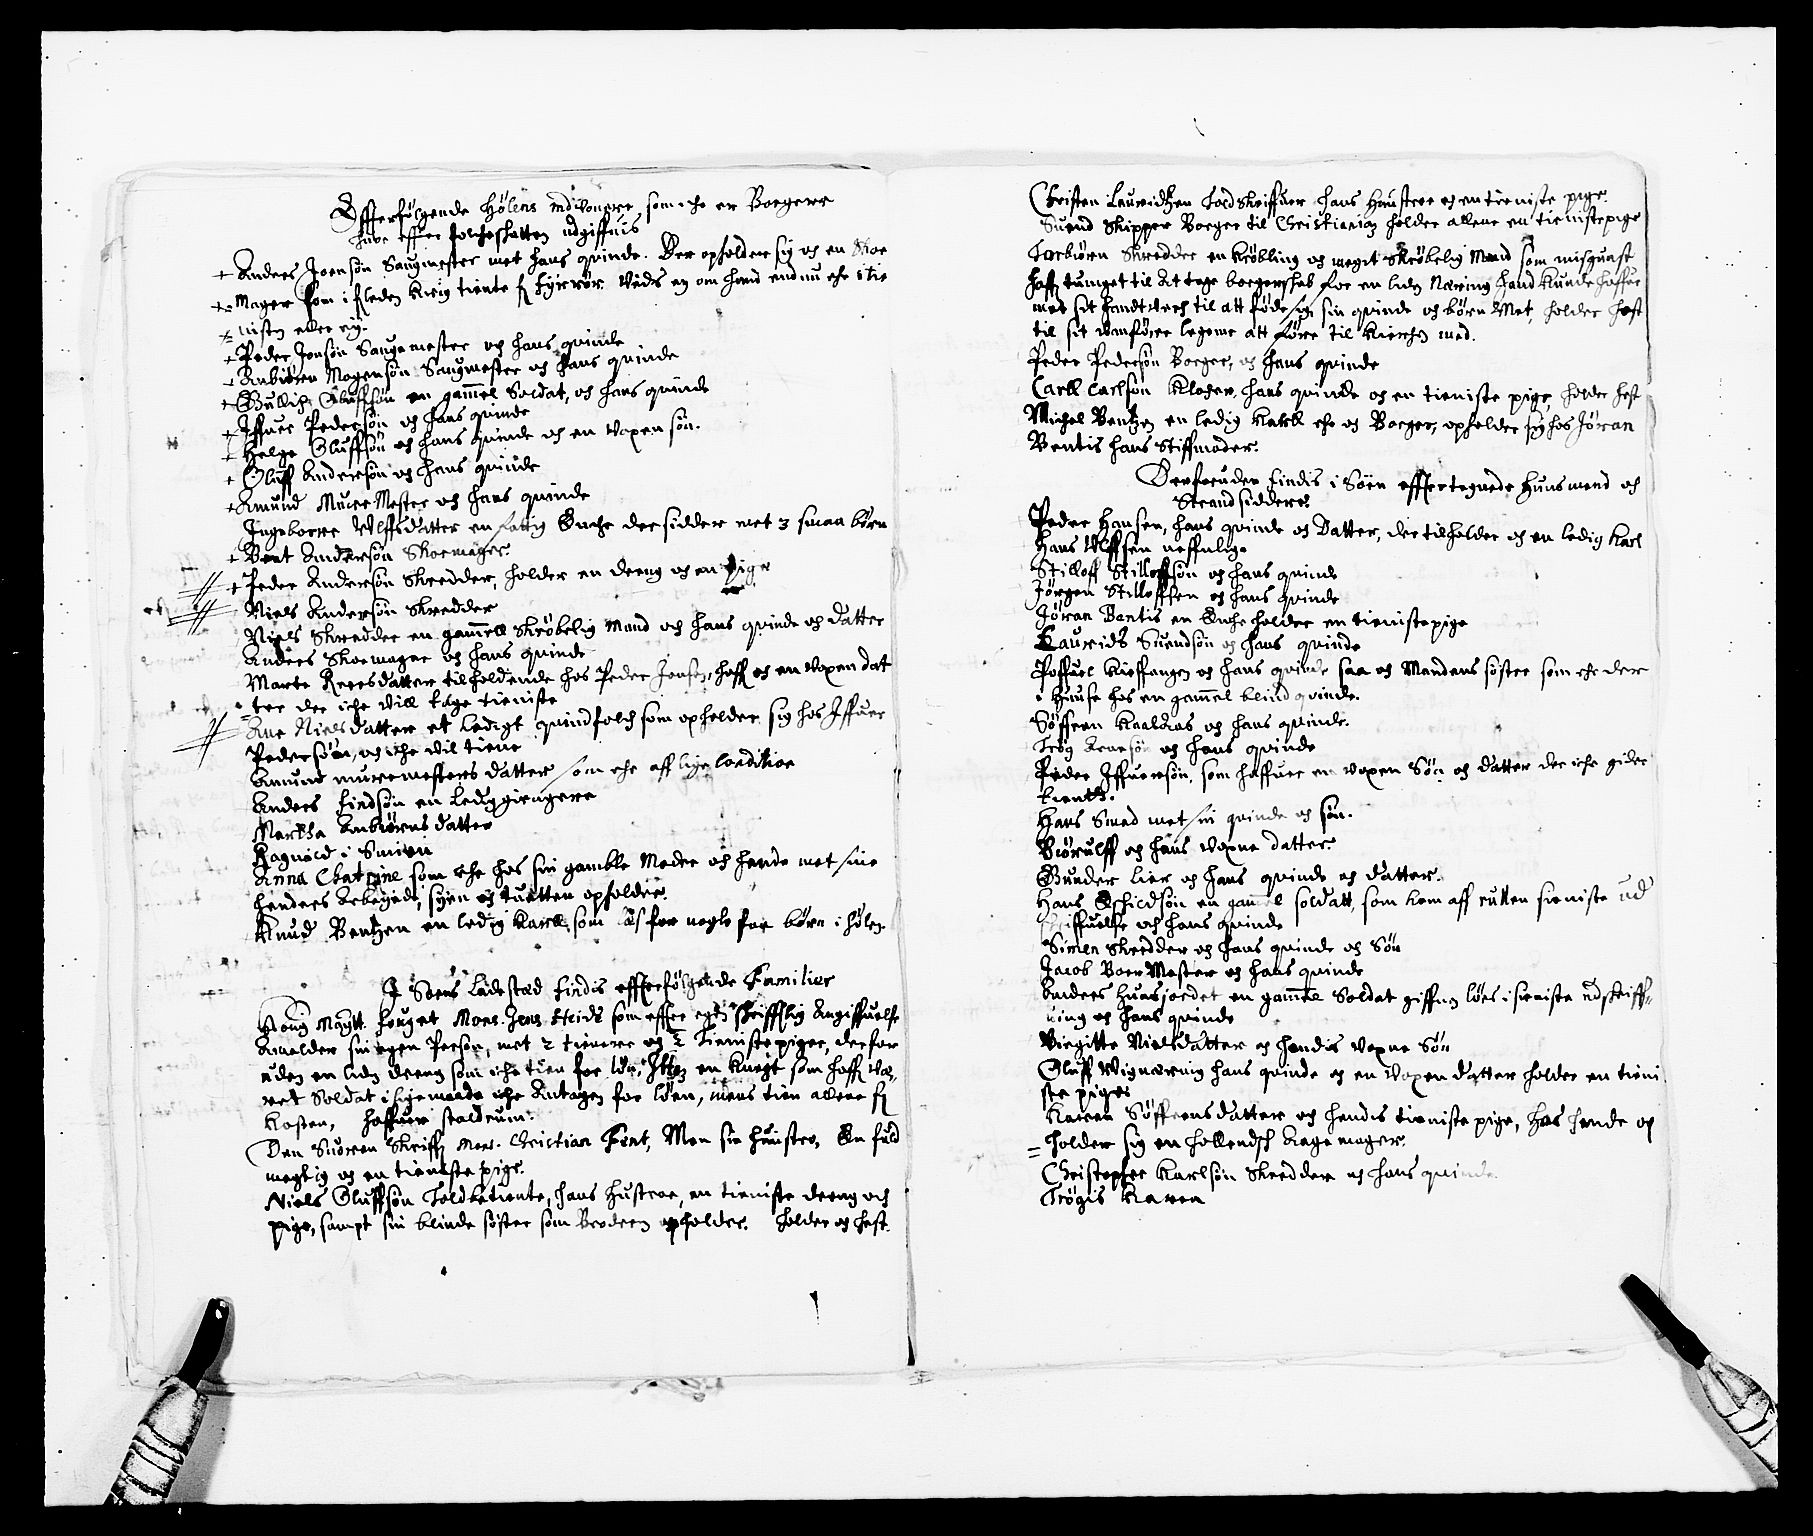 Efterfølgende Hølens indvonere som iche er Borgere
hafve effter folcheskatten udgiffuis
+ Anders Joensøn Saugmester met hans qvinde. Der opholder sig og en Skoe
mager som i leden Krig tiente Fyrrør. Veds ey om hand endnu ehr i tie
nisten eller ey.
+ Peder Jonsøn Saugemester och hans qvinde
+ Anbiören Mogensøn Saugmester och hans qvinde
+ Gullich Oluffsøn en gammel Soldat, och hans qvinde
+ Iffuer Pedersøn och hans qvinde
+ Helge Oluffsøn och hans qvinde och en voxen søn.
+ Oluff Andersøn och hans qvinde
+ Amund Muer Mester och hans qvinde
Ingeborre Ulffsdatter en fattig Enche der sidder met 3 smaa børn
+ Bent Andersøn Skoemager.
+ Peder Andersøn Skredder, holder en dreng og en pige
Niels Andersøn Skredder
Niels Skredder en gammell Skrøbelig Mand och hans qvinde och datter
Anders Skoemager och hans qvinde
Marte Reersdatter tilholdende hos Peder Jonsøn, haff og en voxen dat
ter der iche vill tage tieniste
Ane Nielsdatter et Ledigt qvindfolch som opholder sig hos Iffuer
Pedersøn, og iche vil tiene
Amund murremesters datter som ehr aff lige Condition
Anders Findsøn en Ledyggiengere
Martha Anbiørns datter
Ragnild i Smien
Anna Chatrine som ehr hos sin gamble Moder och hende met sine
henders Arbeyde, syen og knitten opholder.
Knud Bentzen en ledig Karll, som for nogle faa børn i Hølen.
I Soens Ladested findis effterfølgende Familier
Kong Maytt. Fouget Mons. Jens som effter egen skrifftlig Angiffuelse
Anmelder sin egen Person, met 2 tienere og 2 Tienistepiger, der for
uden en liden dreng som iche tien for løn, Item en Knegt som haff
ret Soldat iche Antagen for løen, mens tien allene
Kosten, haffuer staldrum.
Den Suoren Skriffr Mons. Christian Font, Men sin hustro, En fuld
megtig og en tieniste pige.
Niels Oluffsøn Toldbetiente, hans Hustroe, en tieniste dreng och
pige, sampt sin blinde søster som Broderen opholder. holder og hest.
Christen Lauridtzen Toldskriffuer hans Haustroe og en tieniste pige.
Suend Skipper Borger til Christiania holder allene en tienistepige
Torbiørn Skredder en krøbling og meget Skrøbelig Mand som misguast
haff tuinget til At tage borgerskab for en liden Næring hand kunde haffue
met sit handtverch til att føde sig sin qvinde och børn Met, holder hest
til sit vanføere legeme att føre til Kierchen med.
Peder Pedersøn Borger, og hans qvinde
Carll Carlsøn Klocher, hans qvinde og en tieniste pige, holder hest
Michel Bentzen en ledig Karll ehr og Borger, opholder sig hos Jøran
Bentis hans Stiffmoder.
Derforuden findis i Soen effterregnede Huusmend och
Strandsiddere.
Peder Hansen, hans qvinde og Datter, der tilholder og en ledig Karl
Hans Ulffsen neffnlig.
Stilloff Stilloffsøn og hans qvinde
Jørgen Stilloffsen og hans qvinde
Jøran Bentis en Enche holder en tienistepige
Laurids Suendsøn og hans qvinde
Poffuel Kieffanger og hans qvinde saa og Mandens søster som ehr der
i Huuse hos en gammel blind qvinde.
Søffren Kaaldas og hans qvinde.
Trog Arnesøn og hans qvinde
Peder Iffuersøn, som haffuer en voxen Søn og datter der iche gider
tient.
Hans Smed met sin qvinde og søn.
Biørulff og hans voxne datter.
Gunder Lier og hans qvinde og datter.
Hans Eschildsøn en gammel soldatt, som kom aff rullen sieniste ud
skriffuelse och hans qvinde
Simen Skredder og hans qvinde og Søn
Jacob Boer Mester og hans qvinde
Anders Huusjordet en gammel Soldat giffuen løes i sieniste udskriff-
ning og hans qvinde
Birgitte Nielsdatter og hendis voxne Søn
Oluff Wignæring hans qvinde og en voxen datter holder en tieni
ste piges
Karen Søffrensdatter og hendis tieniste pige, hos hende op
holder sig en hollendsch Kagemager.
Christopher Karlsøn Skredder og hans qvinde.
Trøgis Karen